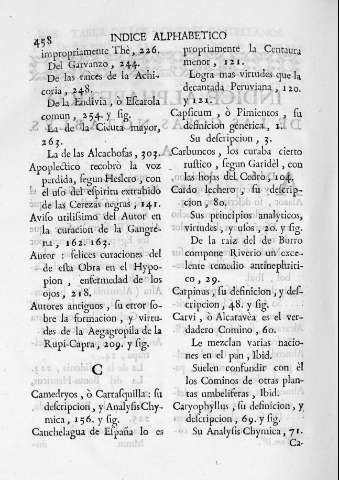 458
INDICE ALPHABETICO
impropriamente Thè, 226.
Del Garvanzo, 244.
De las raices de la Achi-
coria, 248.
De la Endivia, ò Escarola
comun, 254. y sig.
La de la Cicuta mayor,
263.
La de las Alcachofas, 303.
Apoplectico recobrò la voz
perdida, segun Heslero, con
el uso del espiritu extrabido
de las Cerezas negras, 141.
Aviso utilissimo del Autor en
la curacion de la Gangre-
na, 162. 163.
Autor: felices curaciones del
de esta Obra en el Hypo-
pion, enfermedad de los
ojos, 218.
Autores antiguos, su error so-
bre la formacion, y virtu-
des de la Aegagropila de la
Rupi-Capra, 209. y sig.
C
Camedryos, ò Carrasquilla: su
descripcion, y Analysis Chy-
mica, 156. y sig.
Canchelagua de España lo es
propriamente la Centaura
menor, 121.
Logra mas virtudes que la
decantada Peruviana, 120.
y 121.
Capsicum, ò Pimientos, su
definicion generica, 1.
Su descripcion, 3.
Carbuncos, los curaba cierto
rustico, segun Garidel, con
las hojas del Cedro, 104.
Cardo lechero, su descrip-
cion, 80.
Sus principios analyticos,
virtudes, y usos, 20. y sig.
De la raiz del de Burro
compone Riverio un exce-
lente remedio antinephriti-
co, 29.
Carpinus, su definicion, y des-
cripcion, 48. y sig.
Carvi, ò Alcaravèa es el ver-
dadero Comino, 60.
Le mezclan varias nacio-
nes en el pan, Ibid.
Suelen confundir con èl
los Cominos de otras plan-
tas umbeliferas, Ibid.
Caryophyllus, su definicion, y
descripcion, 69. y sig.
Su Analysis Chymica, 71.
Ca-